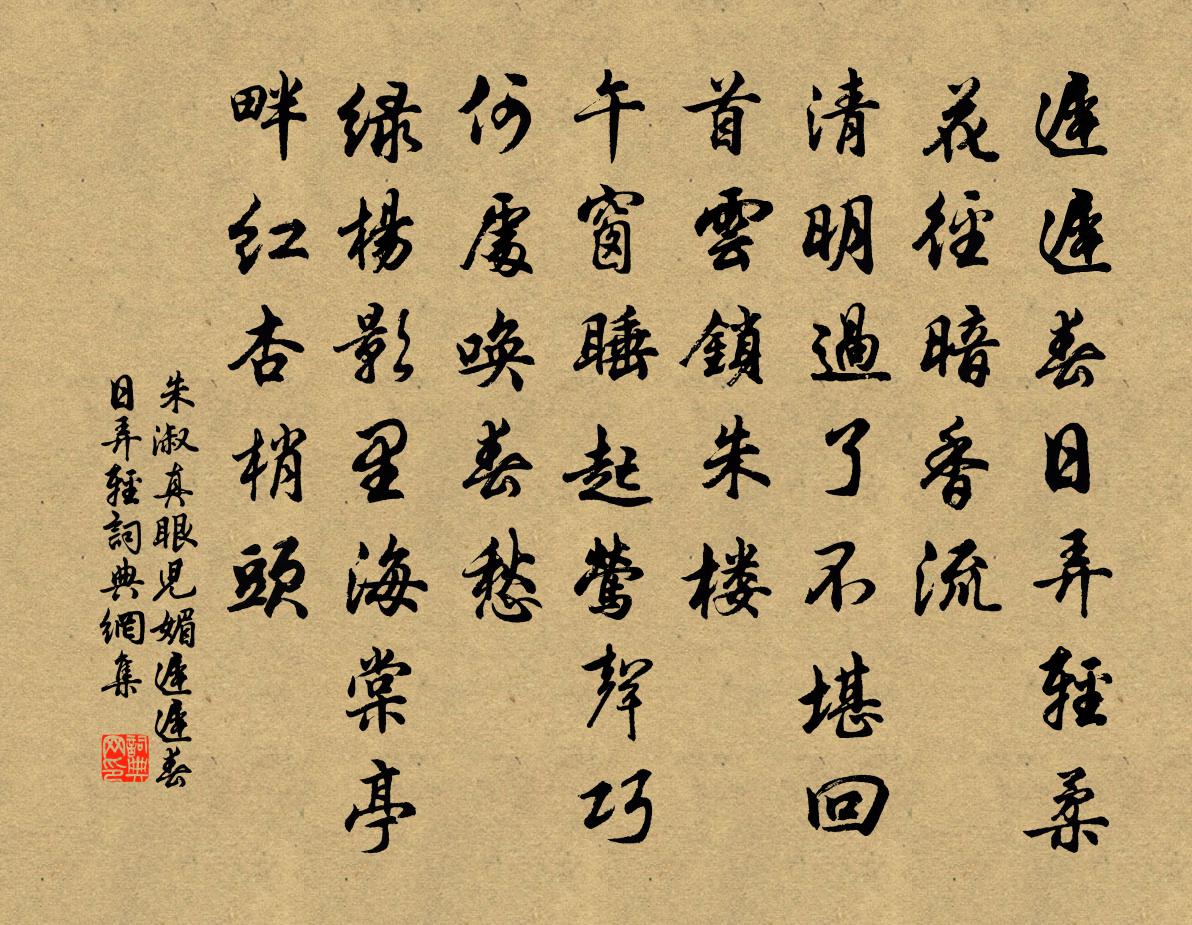 遲遲春日弄輕柔
花徑暗香流
清明過了不堪回
首雲鎖朱楼
午窗睡起莺聲巧
何處唤春愁
绿楊影里海棠亭
畔红杏梢頭
朱淑真眼児媚遲遲春
日弄輕詞典網集
詞典网印